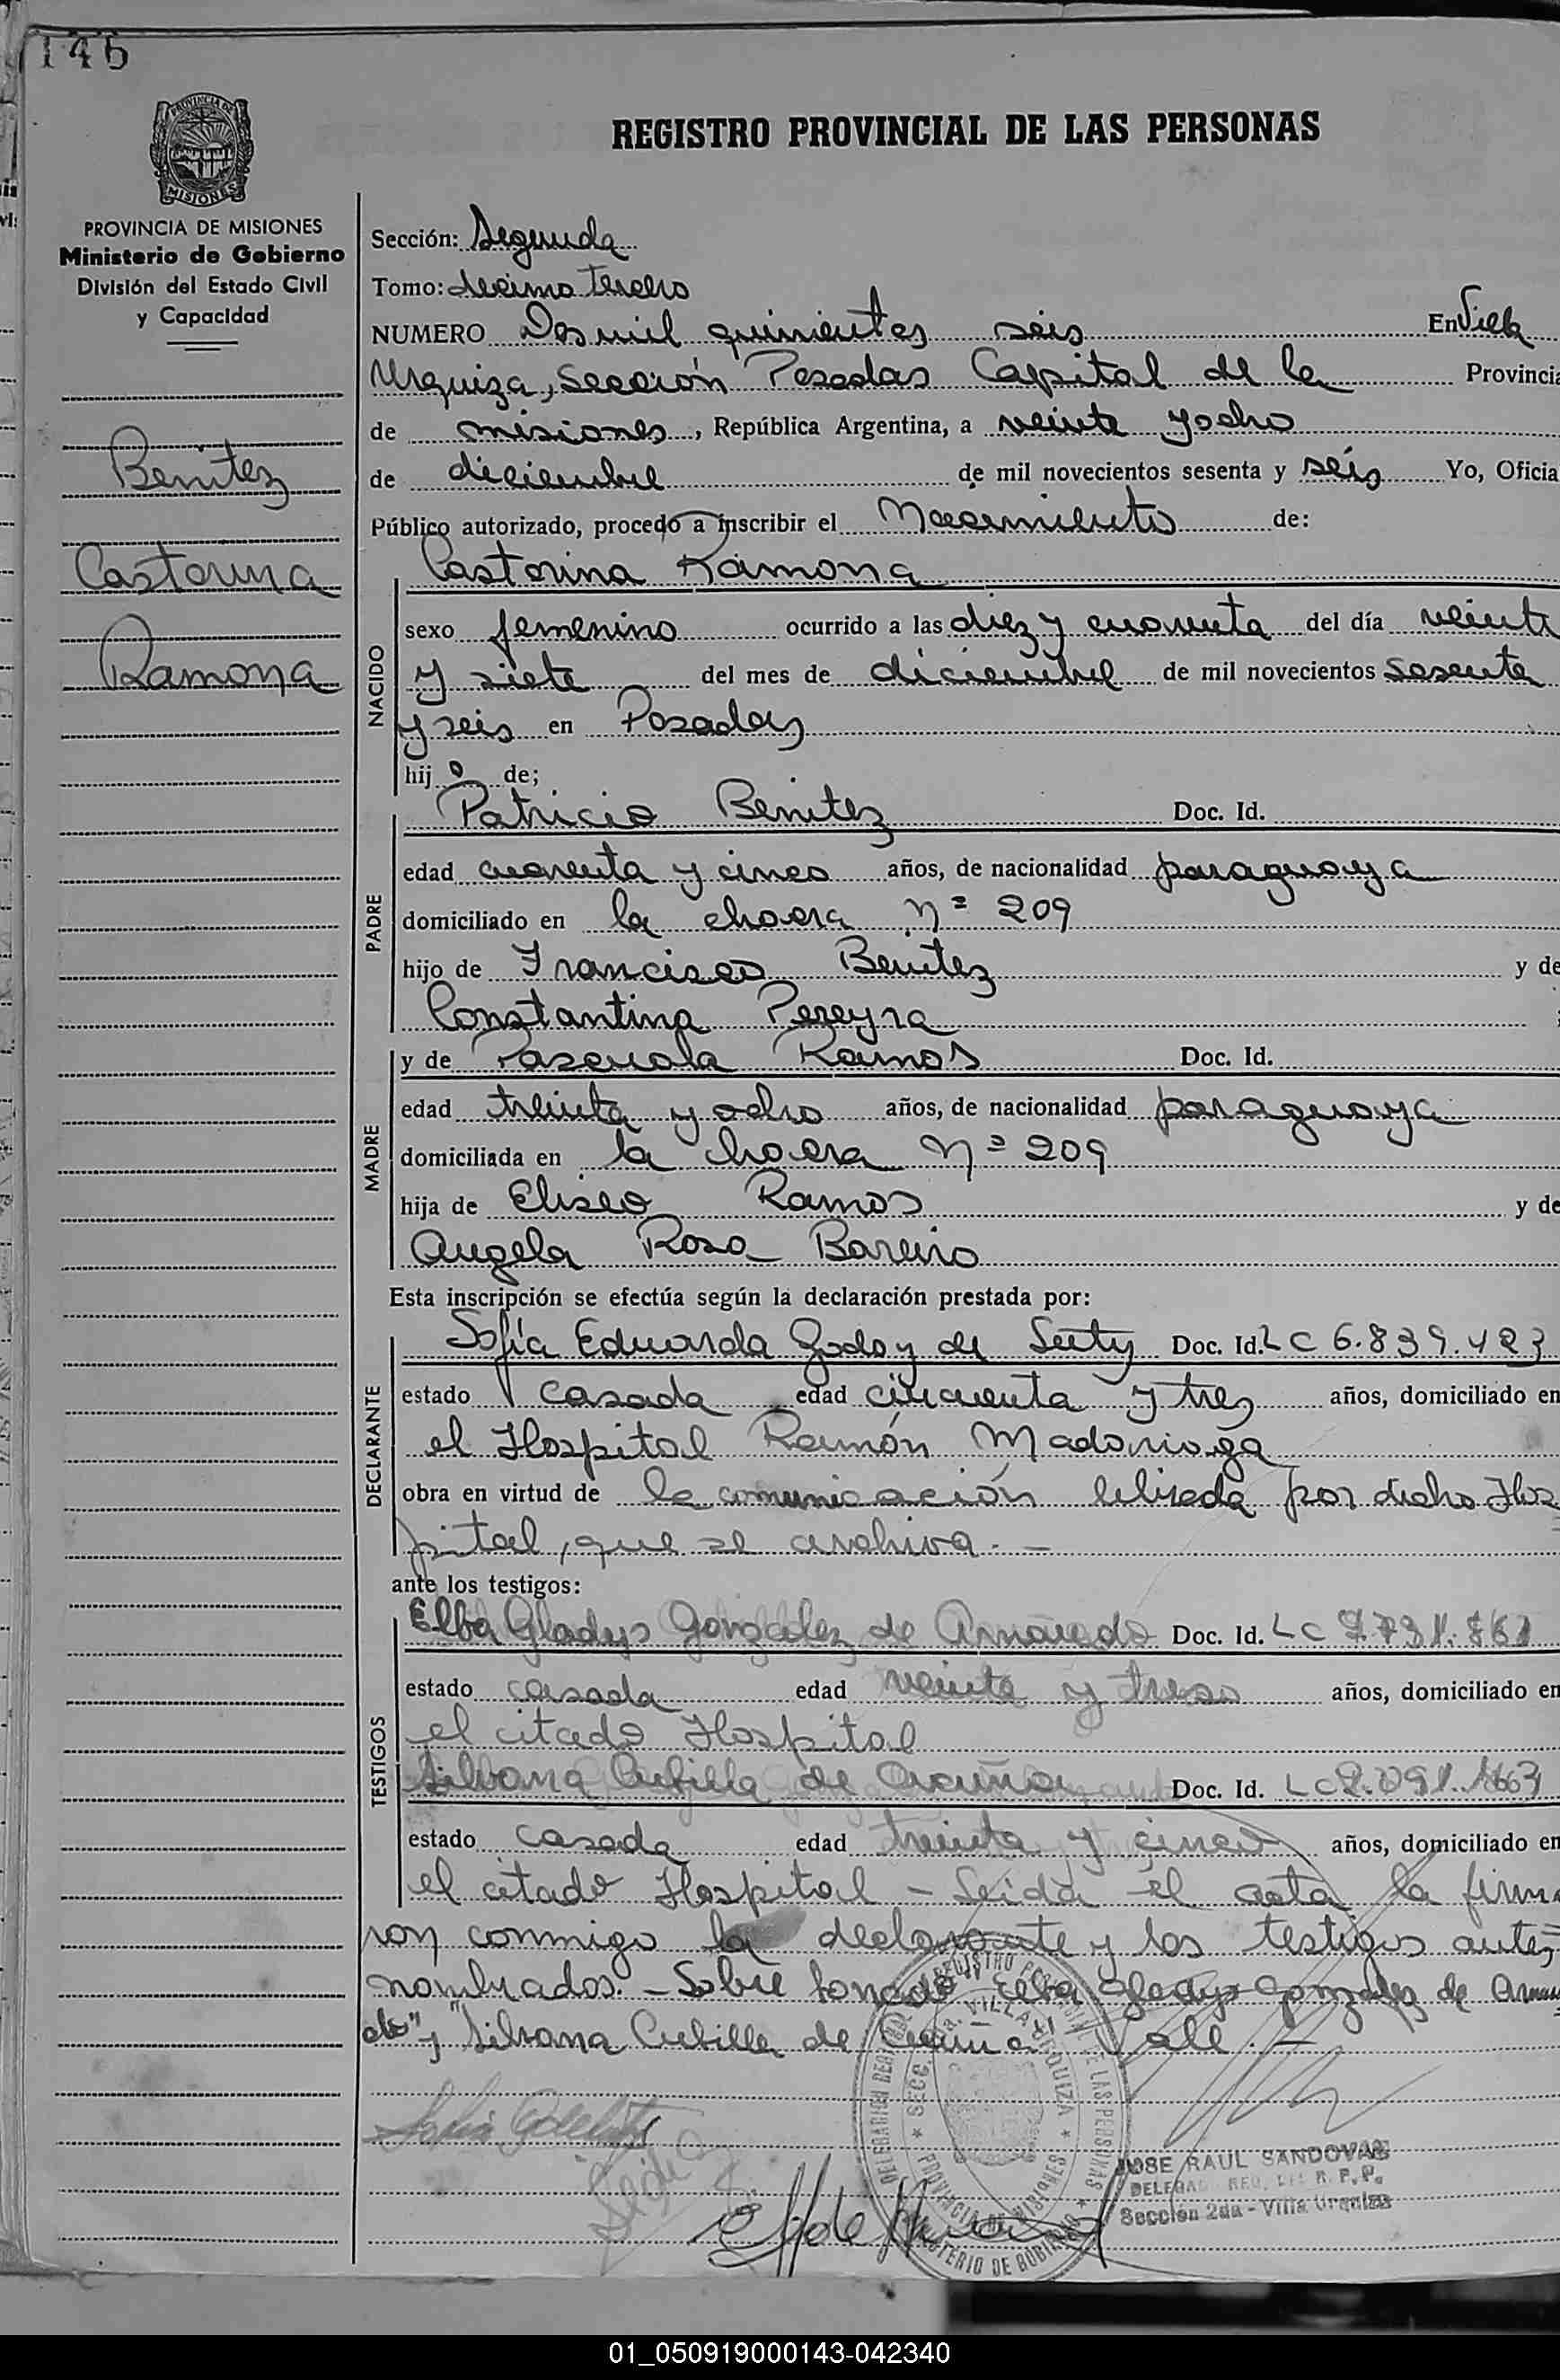 146
PROVINCIA DE
MISIONES
REGISTRO PROVINCIAL DE LAS PERSONAS
PROVINCIA DE MISIONES
Ministerio de Gobierno
División del Estado Civil
y Capacidad
Benitez
Castorina
Ramona
Sección: Segunda
Tomo: decimo tercero
NUMERO Dos mil quinientos seis En Villa
Urquiza, Sección Posadas Capital de la Provincia
de misiones, República Argentina, a veinte y ocho
de diciembre de mil novecientos sesenta y seis Yo, Oficia
Público autorizado, procedo a inscribir el Nacimiento de:
Castorina Ramona
NACIDO
sexo femenino ocurrido a las diez y cuarenta del día veinte
y siete del mes de diciembre de mil novecientos sesenta
y seis en Posadas
hij a de;
PADRE
Patricio Benitez Doc. Id.
edad cuarenta y cinco años, de nacionalidad paraguaya
domiciliado en la chacra Nº 209
hijo de Francisco Benitez y de
Constantina Pereyra
MADRE
y de Pascuala Ramos Doc. Id.
edad treinta y ocho años, de nacionalidad paraguaya
domiciliada en la chacra Nº 209
hija de Eliseo Ramos y de
Angela Rosa Bareiro
Esta inscripción se efectúa según la declaración prestada por:
DECLARANTE
Sofía Eduarda Godoy de Doc. Id. LC 6.839.423
estado casada edad cincuenta y tres años, domiciliado en
el Hospital Ramón Madariaga
obra en virtud de la comunicación librada por dicho Hos
pital, que se archiva. -
ante los testigos:
TESTIGOS
Elba Gladys Gonzalez de Doc. Id. LC
estado casada edad veinte y tres años, domiciliado en
el citado Hospital
Silvana Cubilla de Acuña Doc. Id. LC
estado casada edad treinta y cinco años, domiciliado en
el citado Hospital - Leida el acta la firma
ron conmigo la declarante y los testigos antes
nombrados. - Sobre "Elba Gladys Gonzalez de
do" y "Silvana Cubilla de Acuña" Vale. -
DELEGACION REGISTRO PROVINCIAL DE LAS PERSONAS
SECC. 2a. VILLA URQUIZA
PROVINCIA DE MISIONES
MINISTERIO DE GOBIERNO
JOSE RAUL SANDOVAL
DELEGADO REG. DEL R. P. P.
Sección 2da - Villa Urquiza
01_050919000143-042340